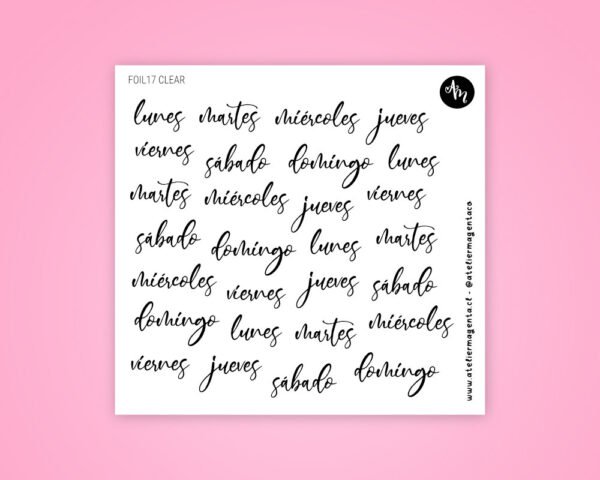 FOIL17 CLEAR
AM
lunes martes miércoles jueves
viernes sábado domingo lunes
martes miércoles jueves viernes
sábado domingo lunes martes
miércoles viernes jueves sábado
domingo lunes martes miércoles
viernes jueves sábado domingo
www.ateliermagenta.cl - @ateliermagentaco